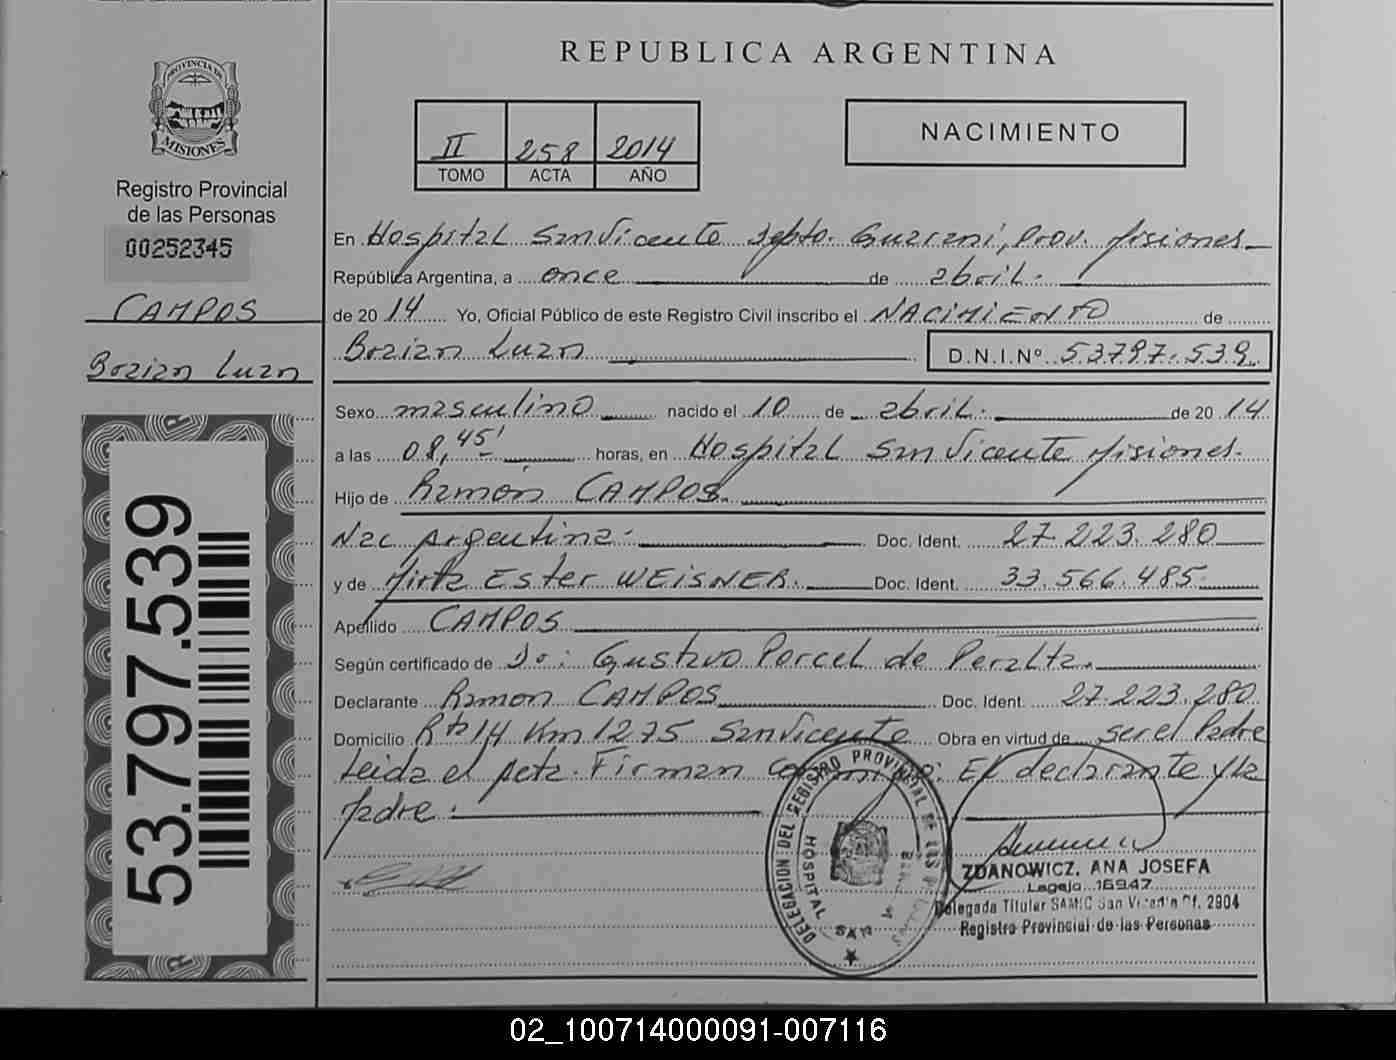 PROVINCIA DE
MISIONES
Registro Provincial
de las Personas
00252345
CAMPOS
Bazian Luan
53.797.539
REPUBLICA ARGENTINA
II 258 2014
TOMO ACTA AÑO
NACIMIENTO
En Hospital San Vicente Depto. Guarani, Prov. Misiones
República Argentina, a once de abril.
de 2014 Yo, Oficial Público de este Registro Civil inscribo el NACIMIENTO de
D.N.I.Nº 53.797.539
Sexo masculino nacido el 10 de abril. de 2014
a las 08,45' horas, en Hospital San Vicente Misiones.
Hijo de Ramon CAMPOS.
Nac Argentina. Doc. Ident. 27.223.280
y de Mirta Ester WEISNER. Doc. Ident. 33.566.485
Apellido CAMPOS
Según certificado de Dr: Gustavo Porcel de Peralta.
Declarante Ramon CAMPOS Doc. Ident. 27.223.280
Domicilio Rta 14 Km 1275 San Vicente Obra en virtud de ser el Padre
Leida el Acta. Firman conmigo: El declarante y la
Madre.
DELEGACION DEL REGISTRO PROVINCIAL DE LAS
HOSPITAL SAN
ZDANOWICZ, ANA JOSEFA
Legajo 16947
Delegada Titular SAMIC San Vicente Of. 2904
Registro Provincial de las Personas
02_100714000091-007116